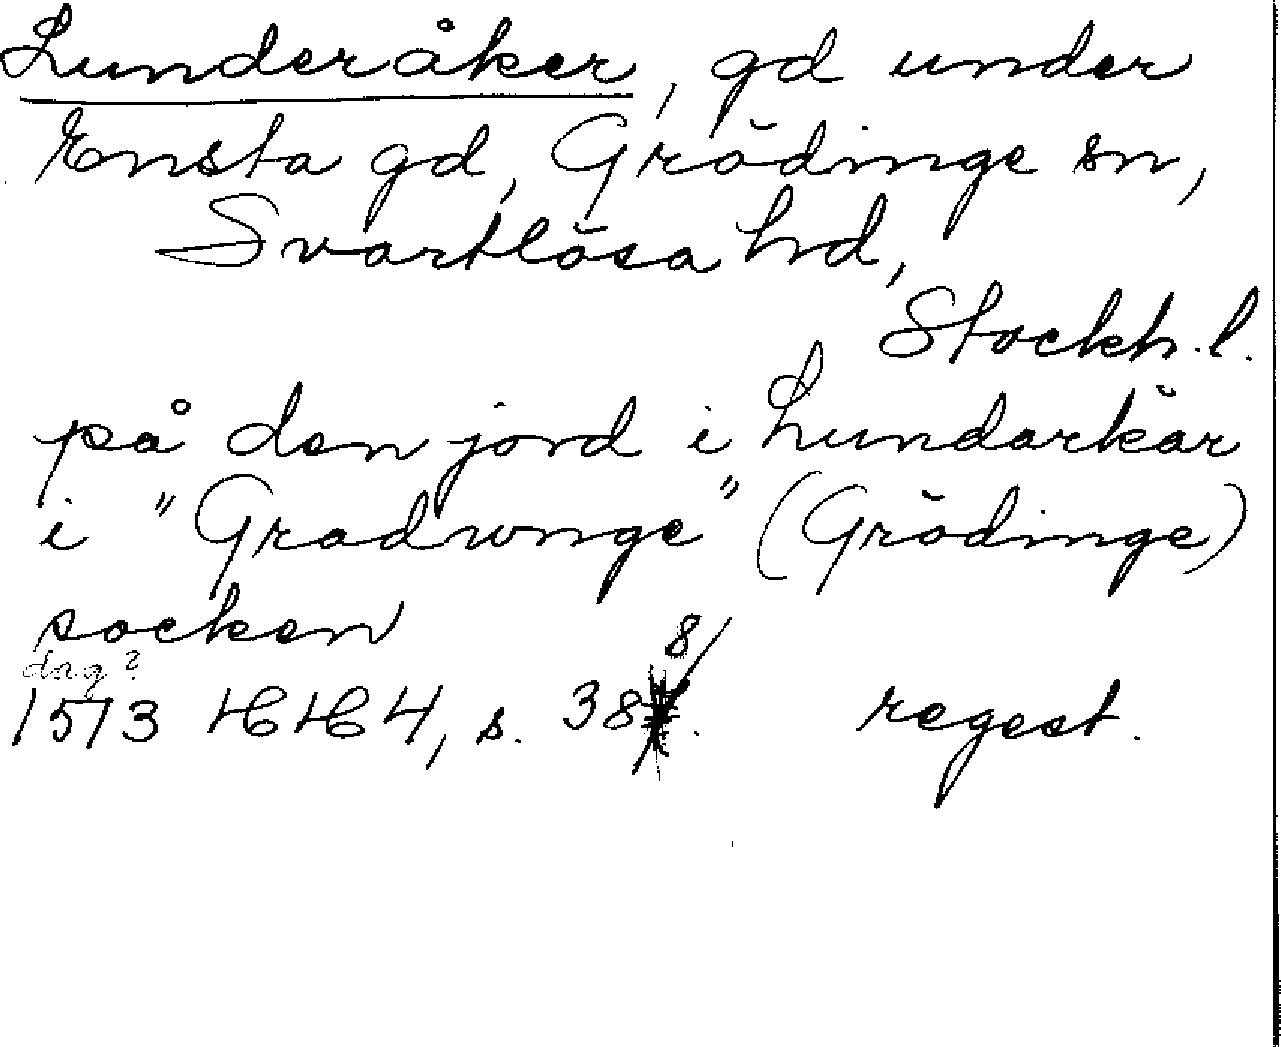 Lunderåker, gd under
Ensta gd, Grödinge sn,
Svartlösa hd,
Stockh. l.
på den jord i Lundarkär
i "Gradwnge" (Grödinge)
socken
dag?
1573 HH 4, s. 388. regest.